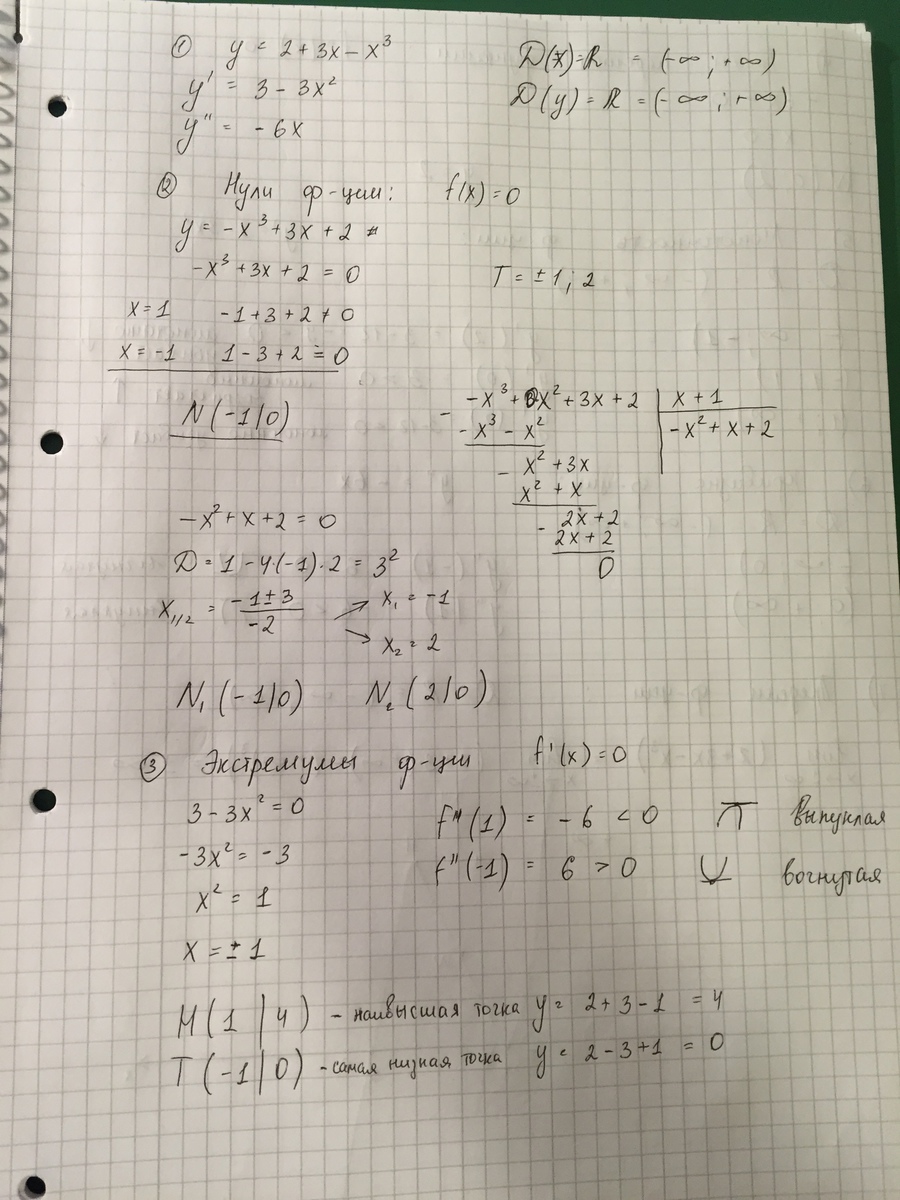 ① y = 2 + 3x − x³ D(x)=R = (−∞ ; +∞)
y' = 3 − 3x² D(y) = R = (−∞ ; +∞)
y'' = − 6x
② Нули ф-ции: f(x) = 0
y = −x³ + 3x + 2
−x³ + 3x + 2 = 0 T = ± 1 ; 2
x = 1 −1 + 3 + 2 ≠ 0
x = −1 1 − 3 + 2 = 0
N (−1 | 0)
− −x³ + 0x² + 3x + 2 | x + 1
−x³ − x² | −x² + x + 2
− x² + 3x
x² + x
− 2x + 2
2x + 2
0
−x² + x + 2 = 0
D = 1 − 4·(−1)·2 = 3²
x₁/₂ = (−1 ± 3)/(−2) ↗ x₁ = −1
↘ x₂ = 2
N₁ (−1 | 0) N₂ (2 | 0)
③ Экстремумы ф-ции f'(x) = 0
3 − 3x² = 0
−3x² = −3
x² = 1
x = ± 1
f''(1) = − 6 < 0 выпуклая
f''(−1) = 6 > 0 вогнутая
H (1 | 4) – наивысшая точка y = 2 + 3 − 1 = 4
T (−1 | 0) – самая низкая точка y = 2 − 3 + 1 = 0